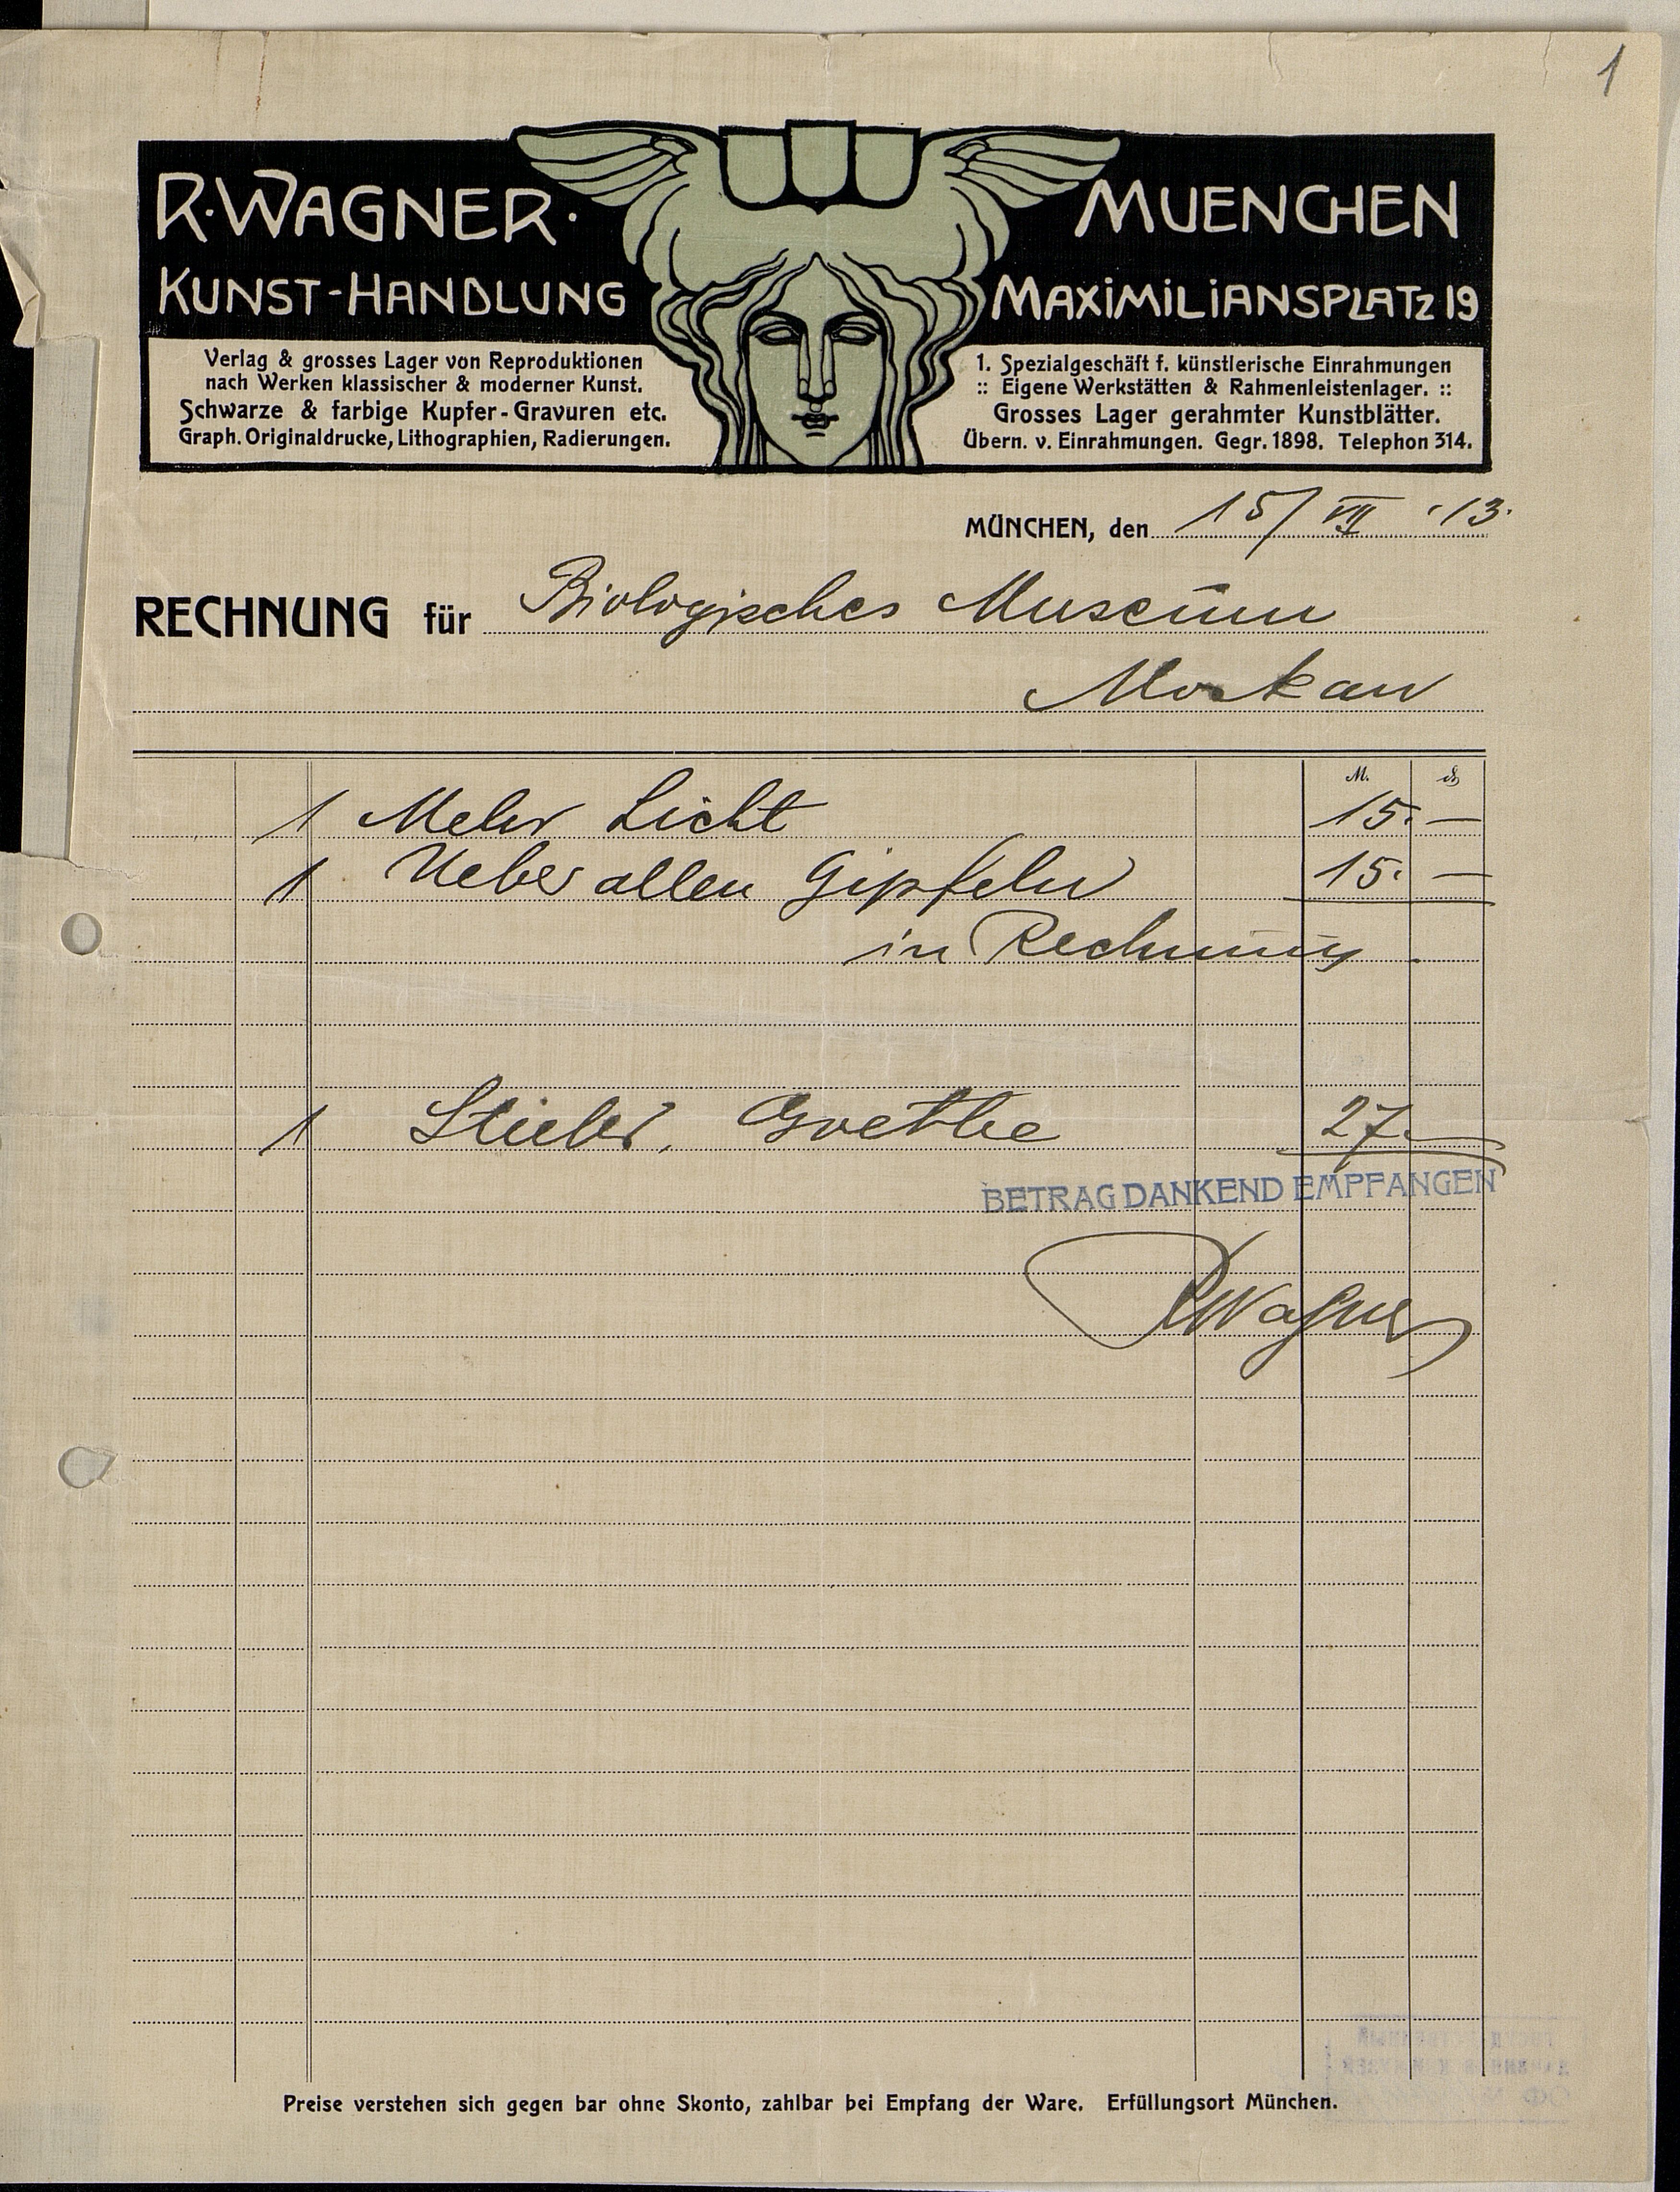 1
R. WAGNER.
KUNST-HANDLUNG
MUENCHEN
MAXIMILIANSPLATZ 19
Verlag & grosses Lager von Reproduktionen
nach Werken klassischer & moderner Kunst.
Schwarze & farbige Kupfer-Gravuren etc.
Graph. Originaldrucke, Lithographien, Radierungen.
1. Spezialgeschäft f. künstlerische Einrahmungen
:: Eigene Werkstätten & Rahmenleistenlager. ::
Grosses Lager gerahmter Kunstblätter.
Übern. v. Einrahmungen. Gegr. 1898. Telephon 314.
MÜNCHEN, den 15/VII '13.
RECHNUNG für Biologisches Museum
Moskau
M. ₰
1 Mehr Licht 15. —
1 Ueber allen Gipfeln 15. —
in Rechnung
1 Stieler, Goethe 27. —
BETRAG DANKEND EMPFANGEN
RWagner
Preise verstehen sich gegen bar ohne Skonto, zahlbar bei Empfang der Ware. Erfüllungsort München.